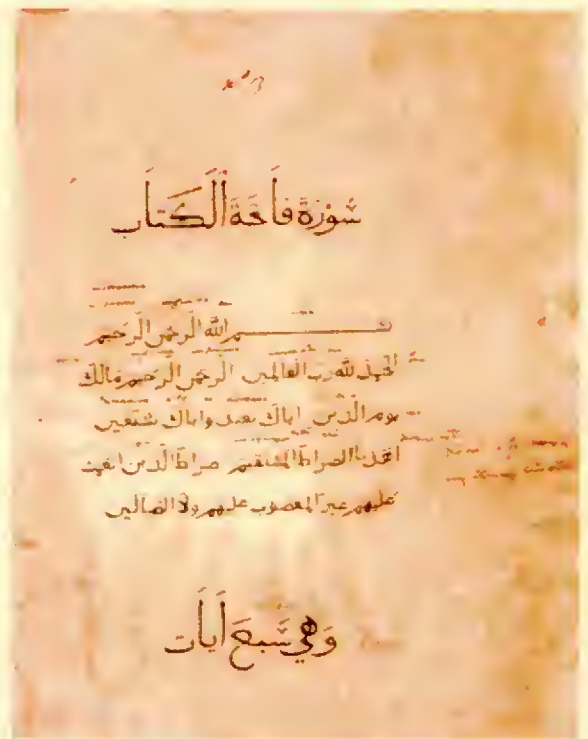 سورة فاتحة الكتاب
بسم الله الرحمن الرحيم
الحمد لله رب العالمين الرحمن الرحيم مالك
يوم الدين اياك نعبد واياك نستعين
اهدنا الصراط المستقيم صراط الذين انعمت
عليهم غير المغضوب عليهم ولا الضالين
وهي سبع أيات